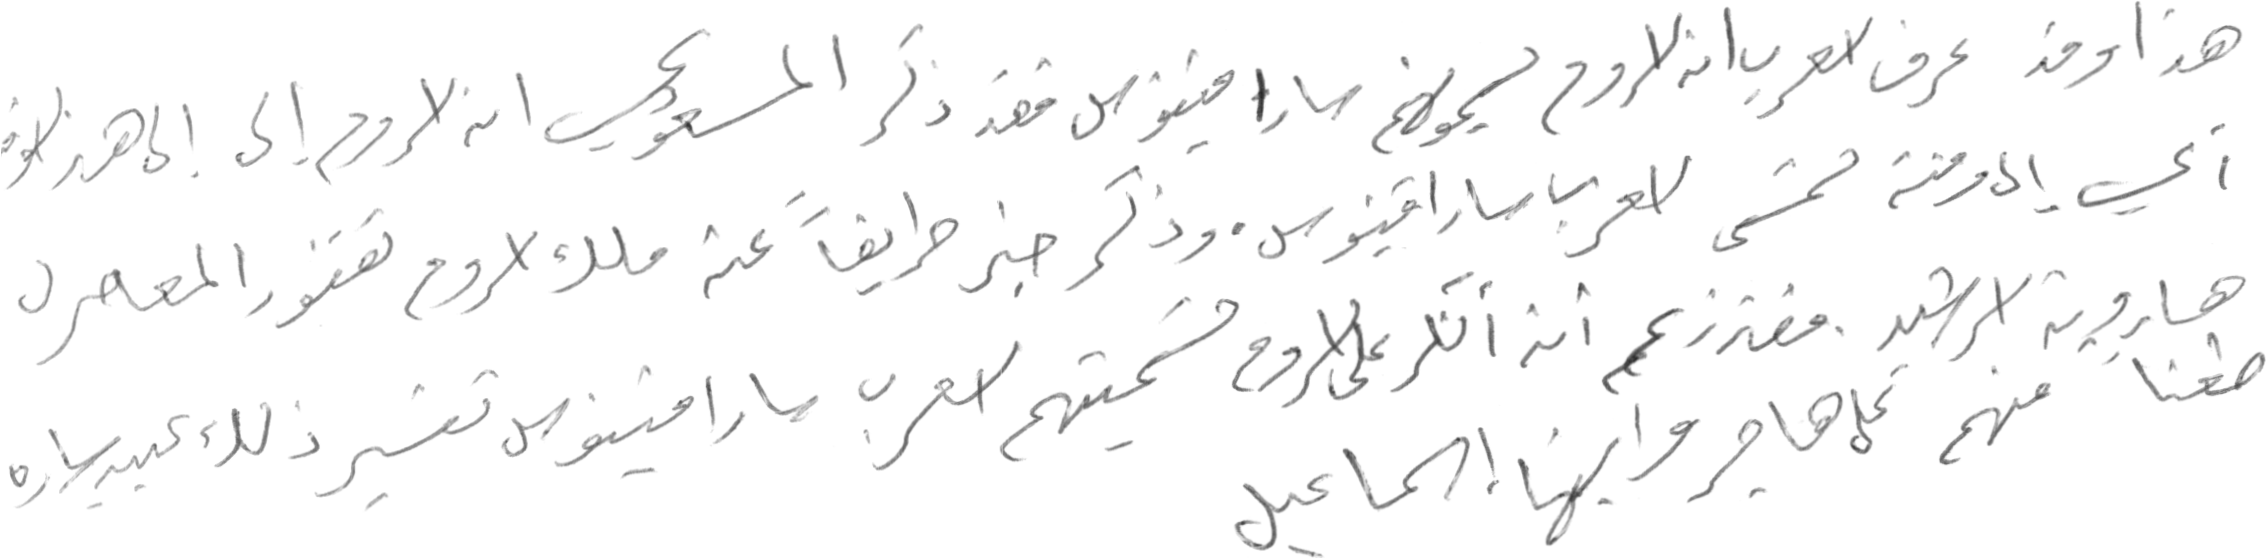 هذا وقد عرف العرب ان الروم يسمونهم ساراقينوس فقد ذكر المسعودي ان الروم إلى إلى هذا الوقت
أي إلى وقته تسمى العرب ساراقينوس. وذكر خبرا طريفاً عن ملك الروم نقفور المعاصر ل
هارون الرشيد. فقد زعم أنه أنكر على الروم تسميتهم العرب ساراقينوس تفسير ذلك عبيد ساره
طعنا منهم على هاجر وابنها إسماعيل